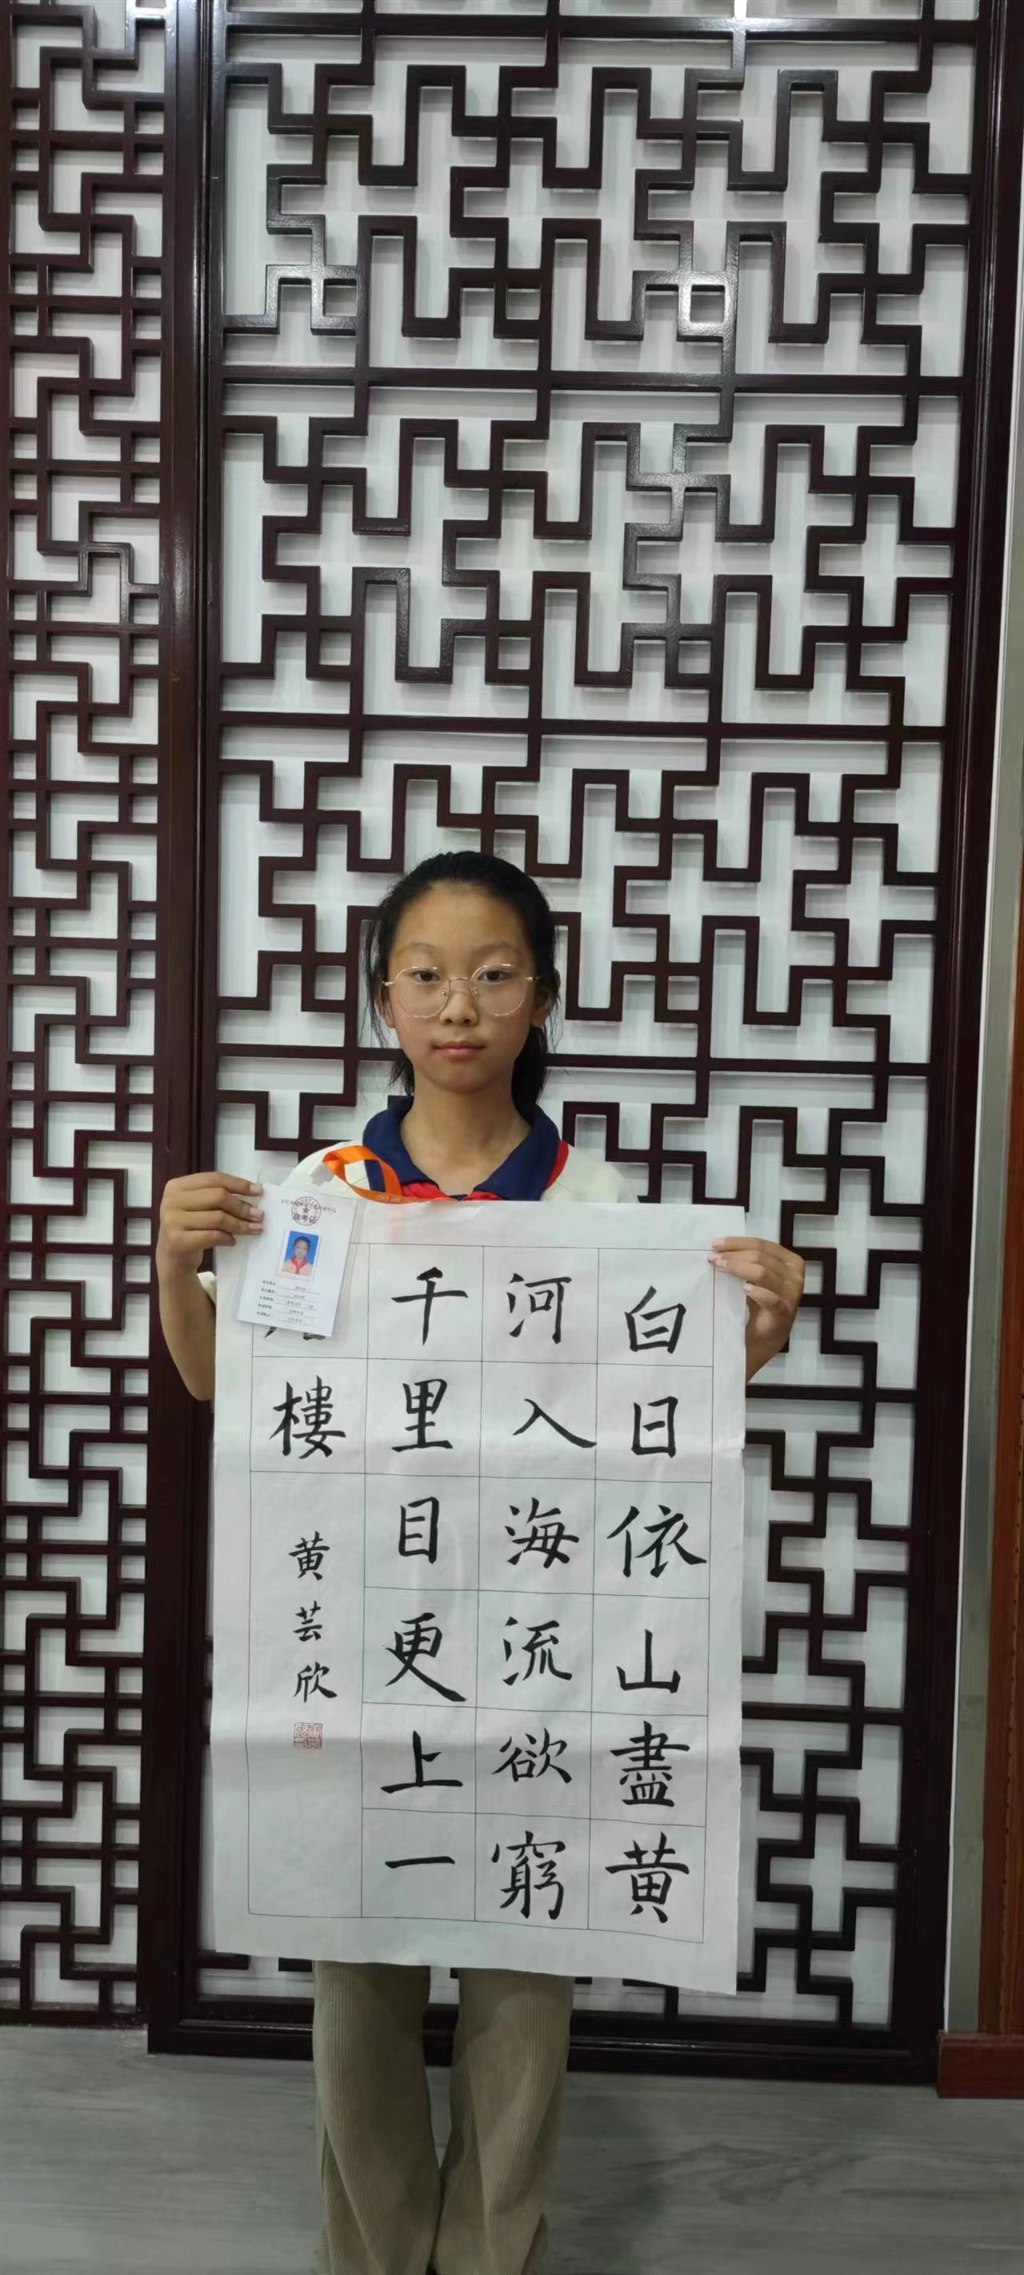 白日依山盡黄
河入海流欲窮
千里目更上一
樓
黄芸欣
准考证